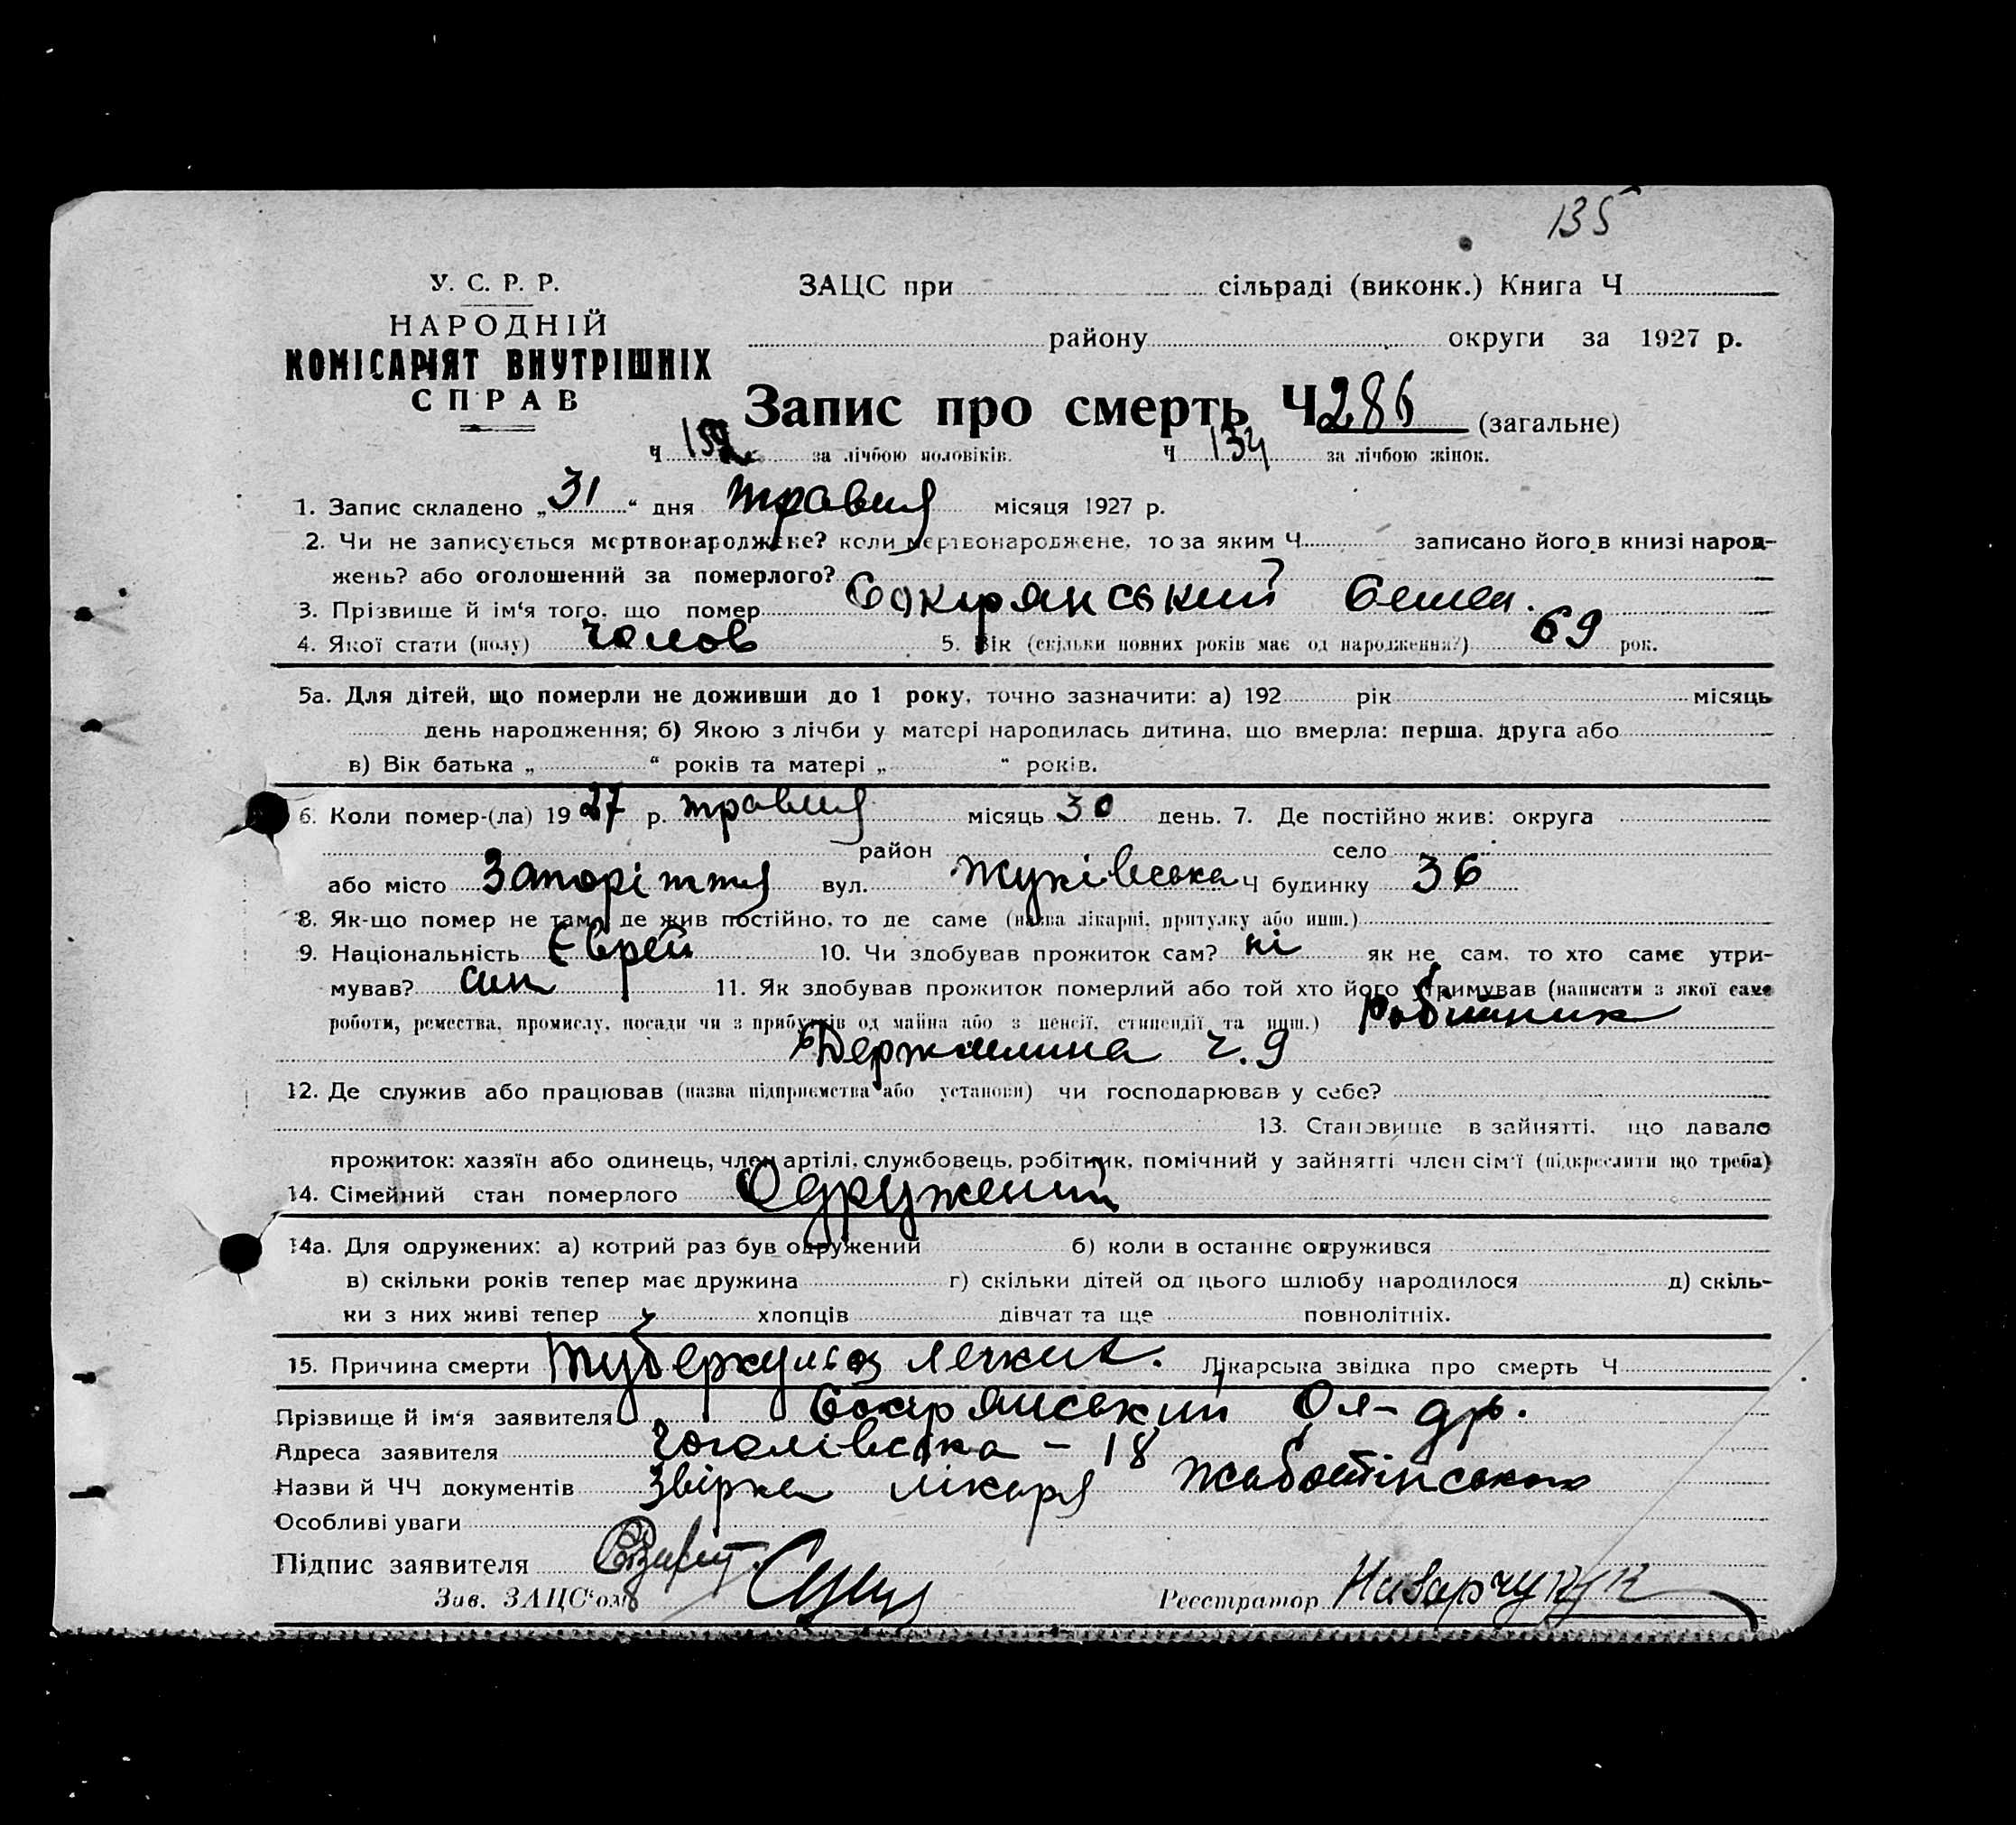 135
У. С. Р. Р.
НАРОДНІЙ
КОМІСАРІЯТ ВНУТРІШНІХ
СПРАВ
ЗАЦС при сільраді (виконк.) Книга Ч
району округи за 1927 р.
Запис про смерть Ч 286 (загальне)
Ч 152 за лічбою чоловіків. Ч 134 за лічбою жінок.
1. Запис складено „ 31 “ дня травня місяця 1927 р.
2. Чи не записується мертвонароджене? коли мертвонароджене, то за яким Ч записано його в книзі народ-
жень? або оголошений за померлого?
3. Прізвище й ім‘я того, що помер Сокирянський
4. Якої стати (полу) чолов 5. Вік (скільки повних років має од народження?) 69 рок.
5а. Для дітей, що померли не доживши до 1 року, точно зазначити: а) 192 рік місяць
день народження; б) Якою з лічби у матері народилась дитина, що вмерла: перша, друга або
в) Вік батька „ “ років та матері „ “ років.
6. Коли помер-(ла) 19 27 р. травня місяць 30 день. 7. Де постійно жив: округа
район село
або місто Запоріжжя вул. Жуківська Ч будинку 36
8. Як-що помер не там, де жив постійно, то де саме (назва лікарні, притулку або инш.)
9. Національність Єврей 10. Чи здобував прожиток сам? ні як не сам, то хто саме утри-
мував? син 11. Як здобував прожиток померлий або той хто його утримував (написати з якої саме
роботи, ремества, промислу, посади чи з прибутків од майна або з пенсії, стипендії та инш.) робітник
Держмлина ч. 9
12. Де служив або працював (назва підприємства або установи) чи господарював у себе?
13. Становище в зайнятті, що давало
прожиток: хазяїн або одинець, член артілі, службовець, робітник, помічний у зайнятті член сім‘ї (підкреслити що треба)
14. Сімейний стан померлого Одружений
14а. Для одружених: а) котрий раз був одружений б) коли в останнє одружився
в) скільки років тепер має дружина г) скільки дітей од цього шлюбу народилося д) скіль-
ки з них живі тепер хлопців дівчат та ще повнолітніх.
15. Причина смерти Туберкульоз легких. Лікарська звідка про смерть Ч
Прізвище й ім‘я заявителя Сокирянський
Адреса заявителя Гоголівська - 18
Назви й ЧЧ документів лікаря Жаботінського
Особливі уваги
Підпис заявителя
Зав. ЗАЦС‘ом Реєстратор